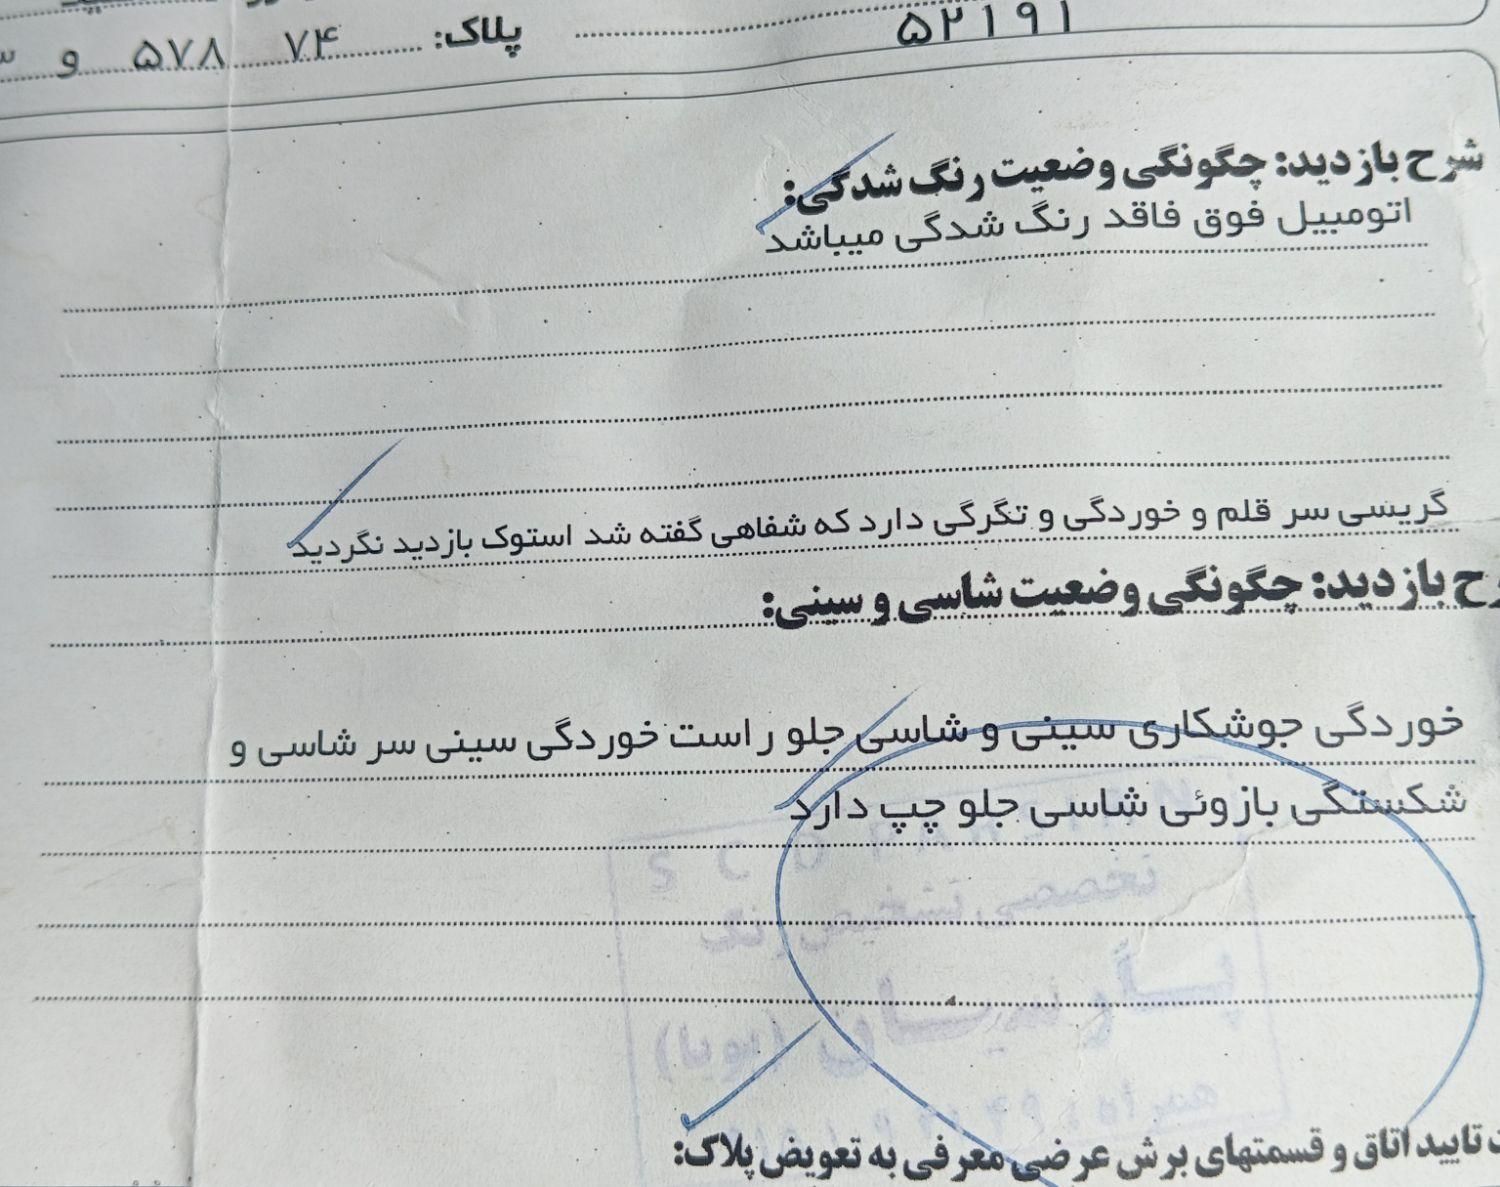 ۵۲۱۹۱
پلاک: ۷۴ ۵۷۸ و
شرح بازدید: چگونگی وضعیت رنگ شدگی:
اتومبیل فوق فاقد رنگ شدگی میباشد
گریسی سر قلم و خوردگی و تگرگی دارد که شفاهی گفته شد استوک بازدید نگردید
بازدید: چگونگی وضعیت شاسی و سینی:
خوردگی جوشکاری سینی و شاسی جلو راست خوردگی سینی سر شاسی و
شکستگی بازوئی شاسی جلو چپ دارد
تخصصی تشخیص رنگ
پارسیان (پویا)
تایید اتاق و قسمتهای برش عرضی معرفی به تعویض پلاک: